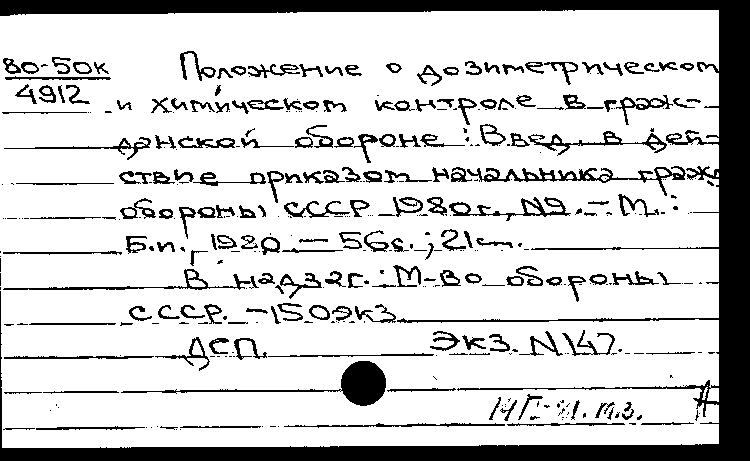 80-50к
4912
Положение о дозиметрическом
и химическом контроле в граж-
данской обороне : Введ. в дей-
ствие приказом начальника граж.
обороны СССР 1980г., N9. – М. :
Б.и., 1980. – 56с. ; 21см.
В надзаг. : М-во обороны
СССР. – 150экз.
ДСП. Экз. N147.